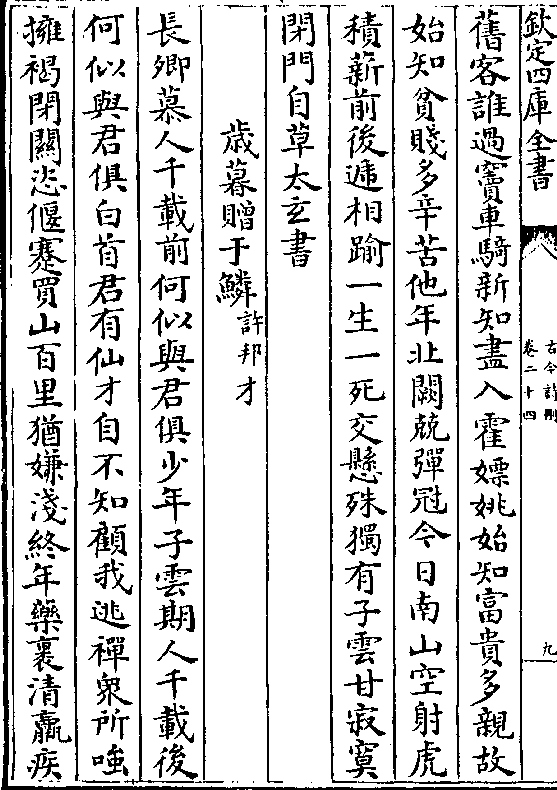 欽定四庫全書
古今詩刪
卷二十四
九
舊客誰過竇車騎新知盡入霍嫖姚始知富貴多親故
始知貧賤多辛苦他年北闕兢彈冠今日南山空射虎
積薪前後遞相踰一生一死交懸殊獨有子雲甘寂寞
閉門自草太玄書
歲暮贈于鱗許邦才
長卿慕人千載前何似與君俱少年子雲期人千載後
何似與君俱白首君有仙才自不知顧我逃禪衆所嗤
擁褐閉關恣偃蹇買山百里猶嫌淺終年藥裹清羸疾